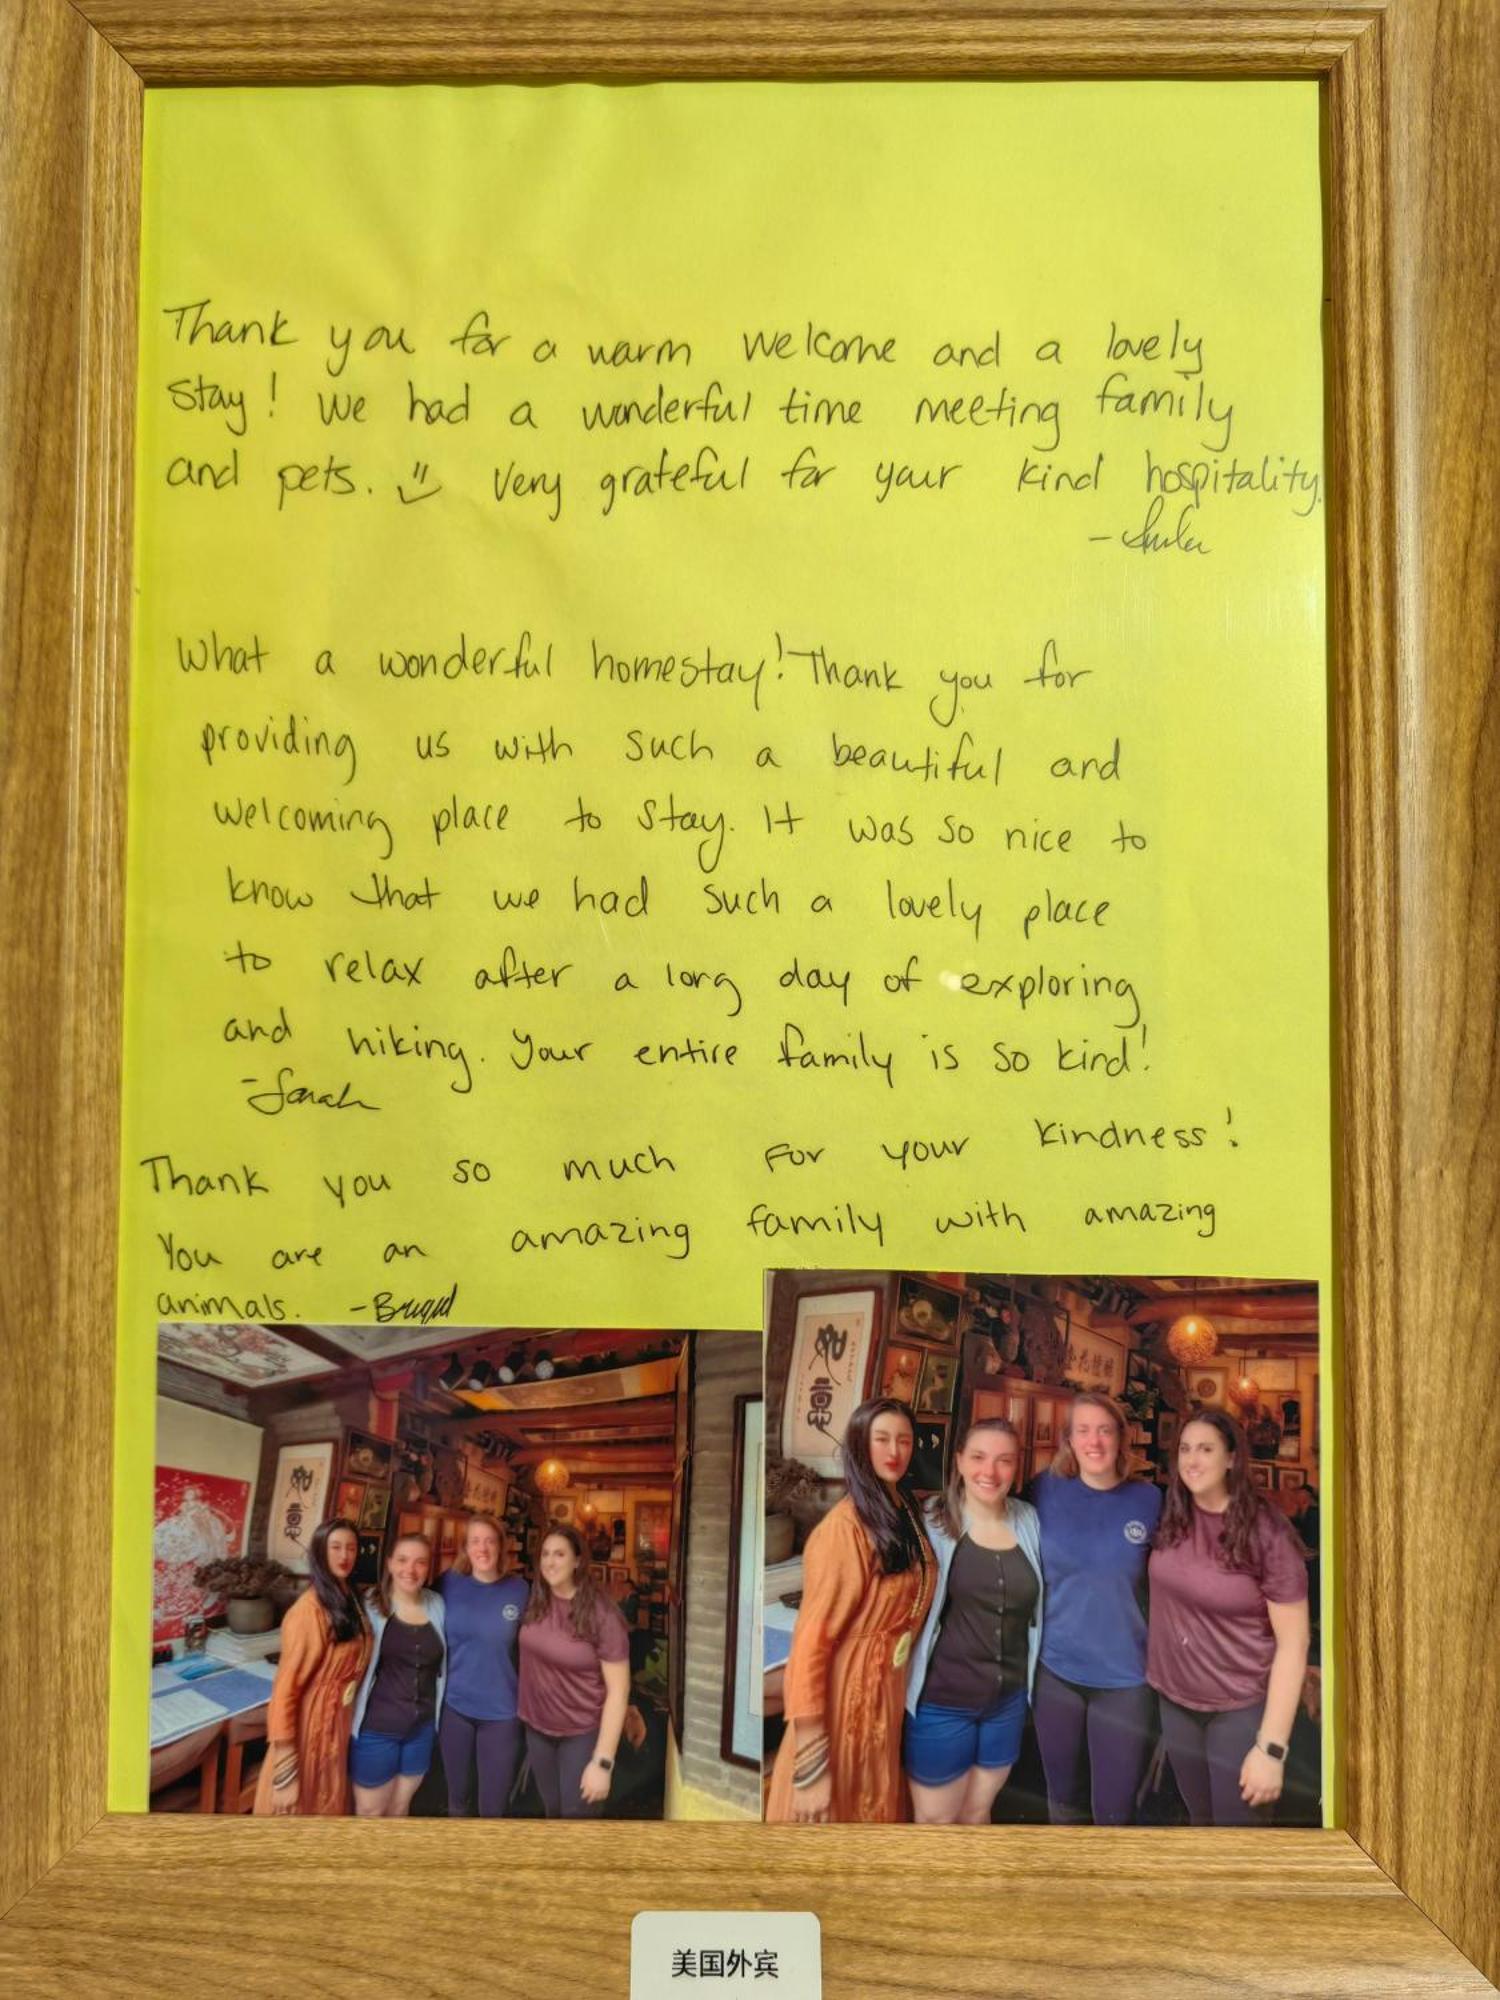 Thank you for a warm welcome and a lovely
stay! We had a wonderful time meeting family
and pets. Very grateful for your kind hospitality.
What a wonderful homestay! Thank you for
providing us with such a beautiful and
welcoming place to stay. It was so nice to
know that we had such a lovely place
to relax after a long day of exploring
and hiking. Your entire family is so kind!
-Sarah
Thank you so much for your kindness!
You are an amazing family with amazing
animals. -Brigid
如意
如意
美国外宾